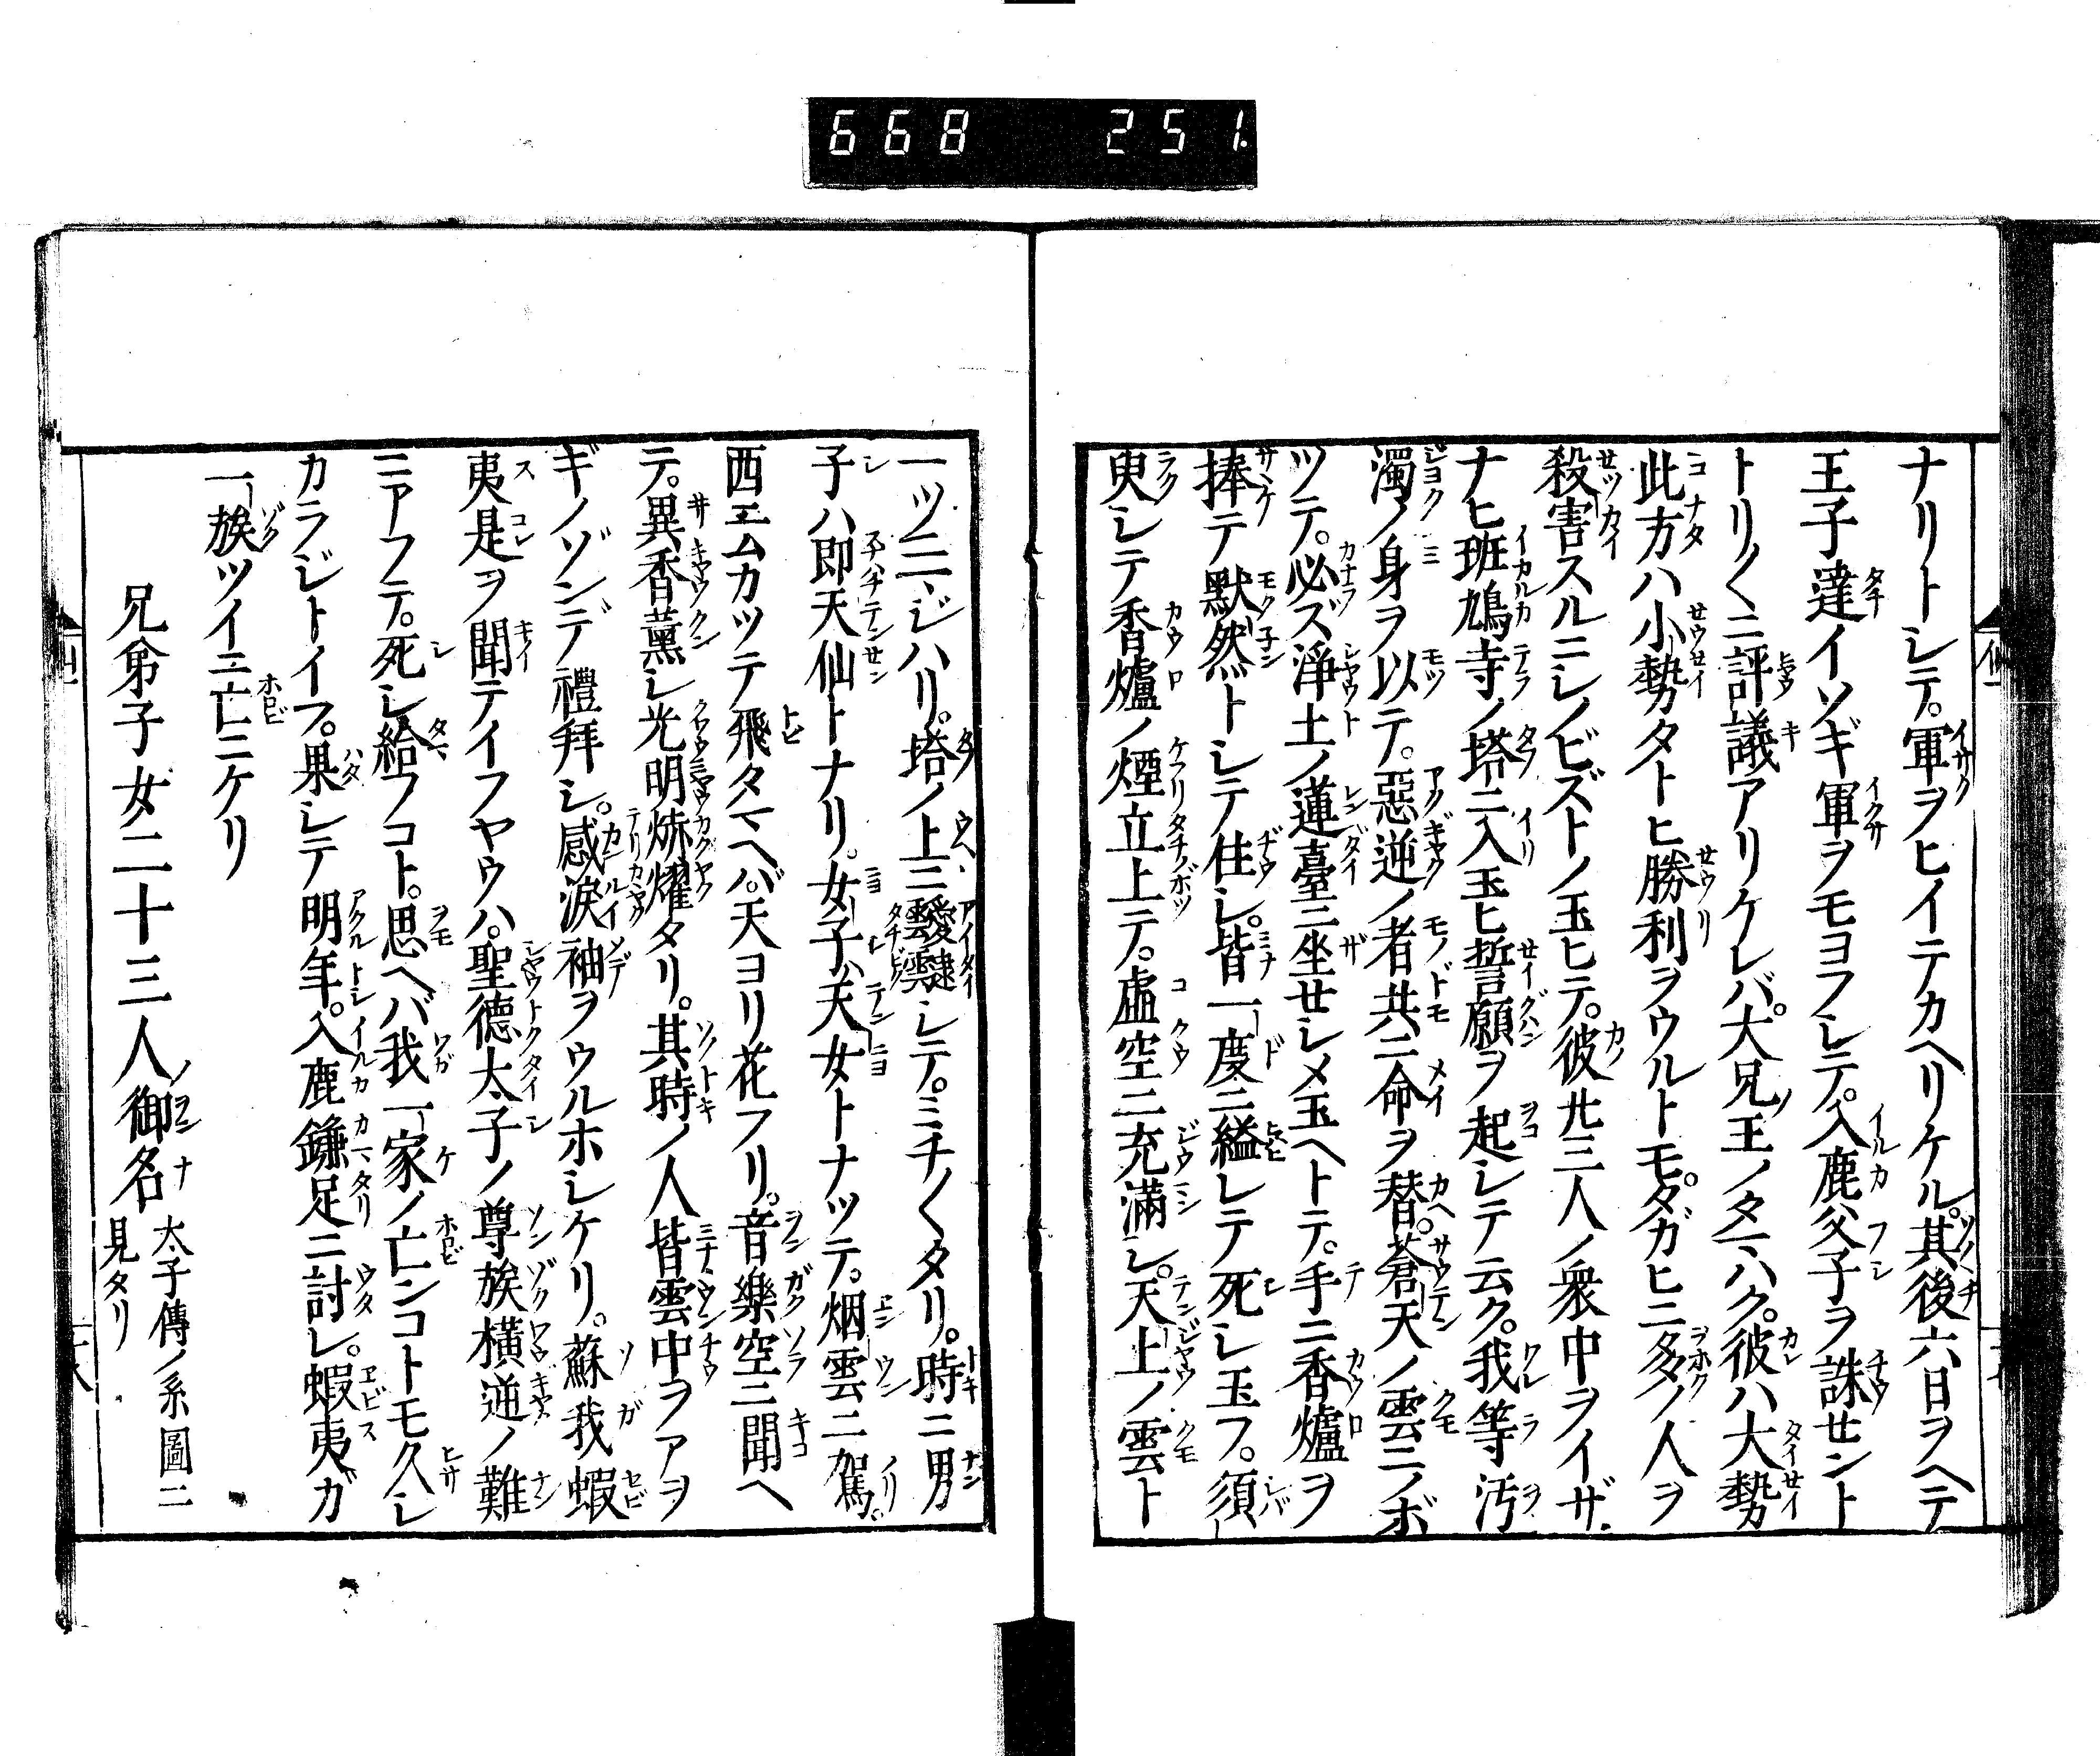 668 251
ナリトシテ。軍ヲヒイテカヘリケル。其後六日ヲヘテ
王子達イソギ軍ヲモヨフシテ。入鹿父子ヲ誅セント
トリ〱ニ評議アリケレバ。大兄王ノタマハク。彼ハ大勢
此方ハ小勢タトヒ勝利ヲウルトモ。タガヒニ多ノ人ヲ
殺害スルニシノビズトノ玉ヒテ。彼廿三人ノ衆中ヲイザ
ナヒ班鳩寺ノ塔ニ入玉ヒ誓願ヲ起シテ云ク。我等汚
濁ノ身ヲ以テ。惡逆ノ者共ニ命ヲ替。蒼天ノ雲ニノボ
ツテ。必ズ淨土ノ蓮臺ニ坐セシメ玉ヘトテ。手ニ香爐ヲ
捧テ默然トシテ住シ。皆一度ニ縊シテ死シ玉フ。須
臾シテ香爐ノ煙立上テ。虛空ニ充滿シ。天上ノ雲ト
一ツニマジハリ。塔ノ上ニ靉靆シテ。ミチ〱タリ。時ニ男
子ハ即天仙トナリ。女子ハ天女トナッテ。烟雲ニ駕。
西エムカツテ飛タマヘバ。天ヨリ花フリ。音樂空ニ聞ヘ
テ。異香薰シ光明焃耀タリ。其時ノ人皆雲中ヲアヲ
ギノゾンデ禮拜シ。感淚袖ヲウルホシケリ。蘇我蝦
夷是ヲ聞テイフヤウハ。聖德太子ノ尊族橫逆ノ難
ニアフテ。死シ給フコト。思ヘバ我一家ノ亡ンコトモ久シ
カラジトイフ。果シテ明年。入鹿鎌足ニ討レ。蝦夷ガ
一族ツイニ亡ニケリ
兄弟子女二十三人御名 太子傳ノ系圖ニ
見タリ